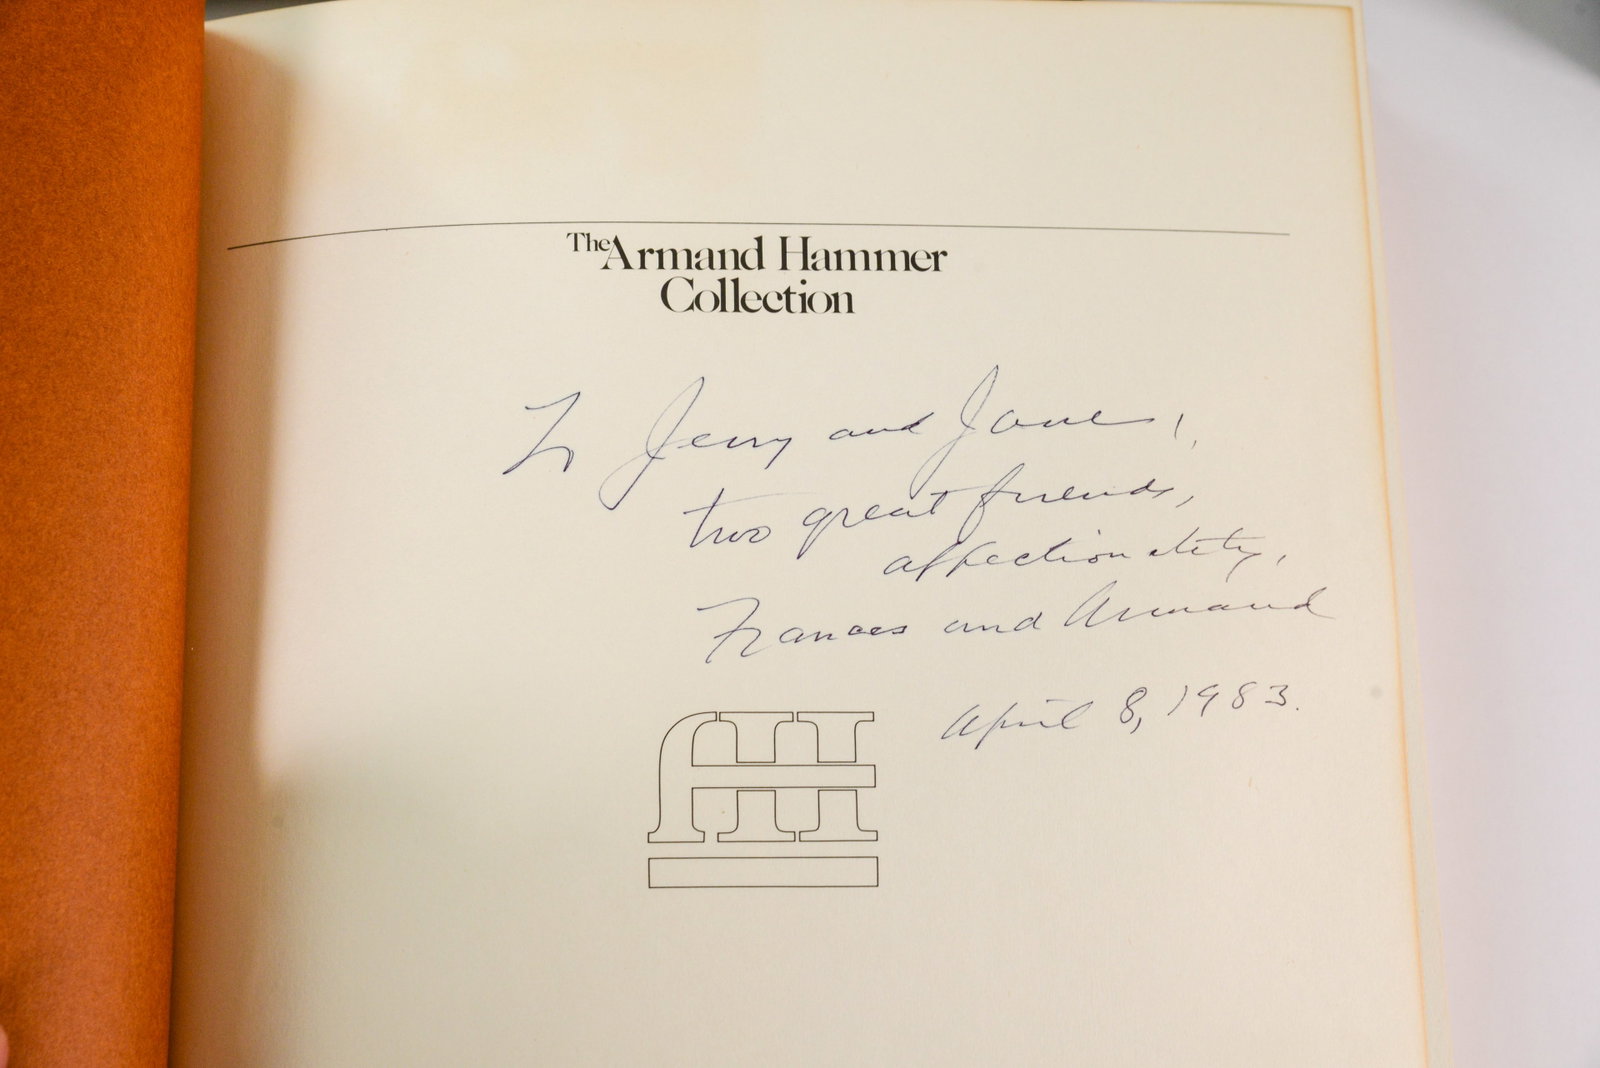 The Armand Hammer
Collection
To Jerry and Jane,
two great friends,
affectionately,
Frances and Armand
April 8, 1983.
AH